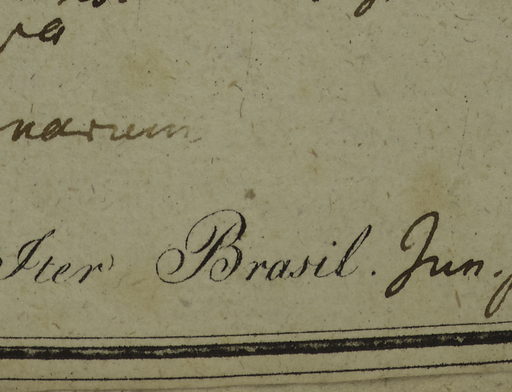 narum
Iter Brasil. Jun.